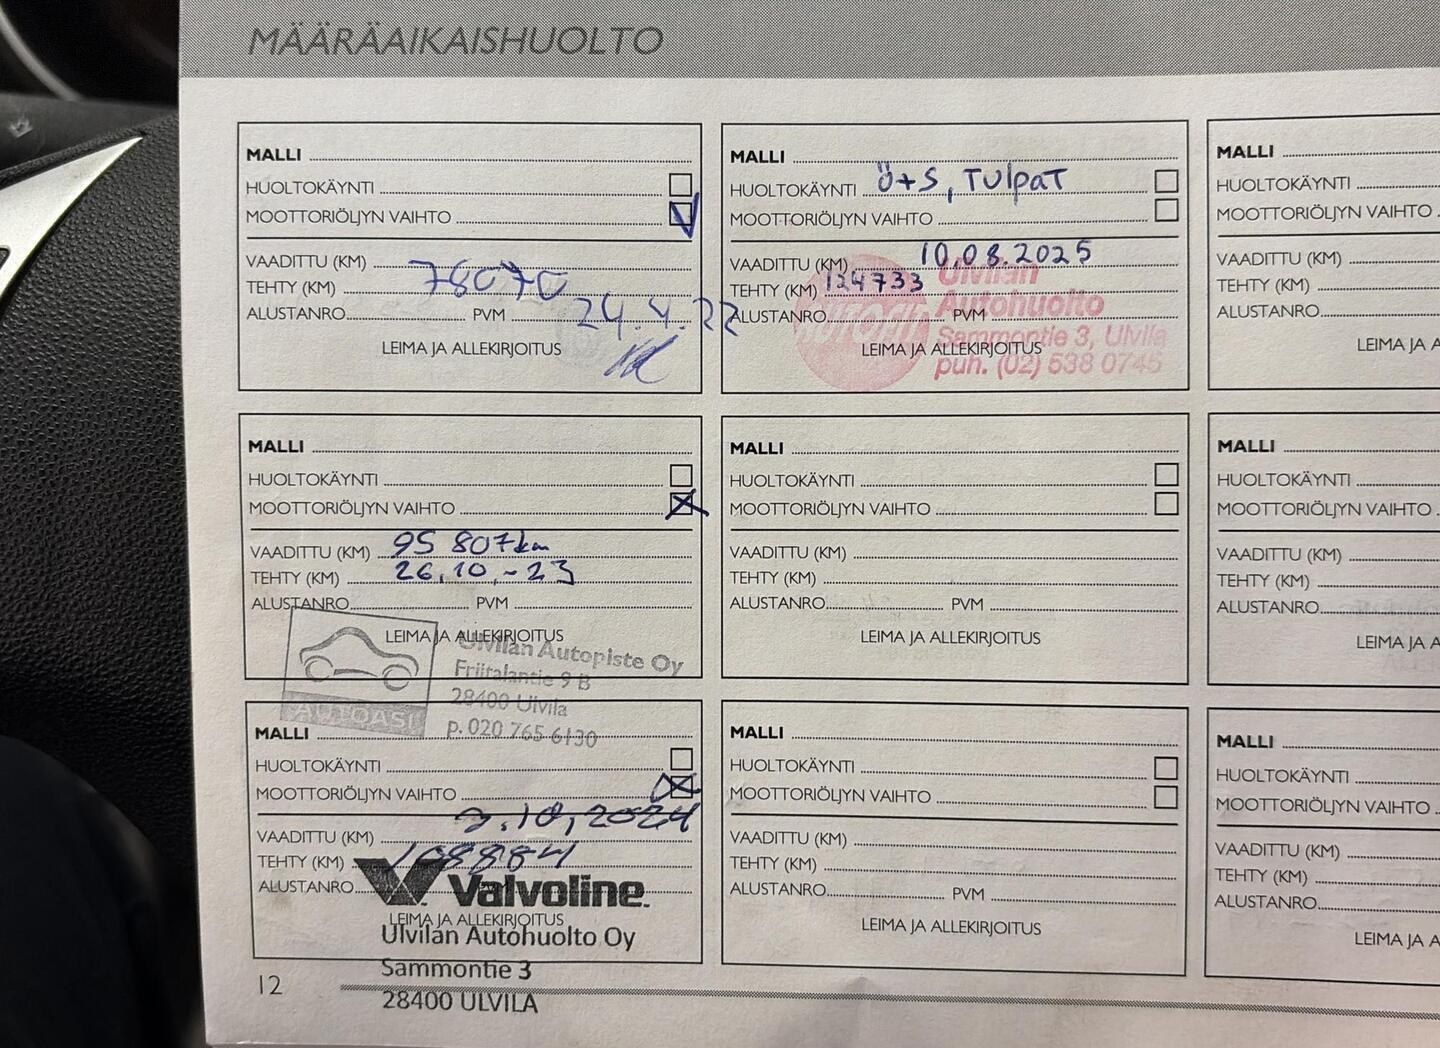 MÄÄRÄAIKAISHUOLTO
MALLI
HUOLTOKÄYNTI
MOOTTORIÖLJYN VAIHTO
VAADITTU (KM)
TEHTY (KM) 78070
ALUSTANRO PVM 24.4.22
LEIMA JA ALLEKIRJOITUS
MALLI
HUOLTOKÄYNTI Ö+S, TULPAT
MOOTTORIÖLJYN VAIHTO
VAADITTU (KM) 10.08.2025
TEHTY (KM) 124733
ALUSTANRO PVM
LEIMA JA ALLEKIRJOITUS
Ulvilan
Autohuolto
Sammontie 3, Ulvila
puh. (02) 538 0745
MALLI
HUOLTOKÄYNTI
MOOTTORIÖLJYN VAIHTO
VAADITTU (KM)
TEHTY (KM)
ALUSTANRO
LEIMA JA A
MALLI
HUOLTOKÄYNTI
MOOTTORIÖLJYN VAIHTO
VAADITTU (KM) 95 807km
TEHTY (KM) 26.10.-23
ALUSTANRO PVM
LEIMA JA ALLEKIRJOITUS
AUTOASI
Ulvilan Autopiste Oy
Friitalantie 9 B
28400 Ulvila
p. 020 765 6130
MALLI
HUOLTOKÄYNTI
MOOTTORIÖLJYN VAIHTO
VAADITTU (KM)
TEHTY (KM)
ALUSTANRO PVM
LEIMA JA ALLEKIRJOITUS
MALLI
HUOLTOKÄYNTI
MOOTTORIÖLJYN VAIHTO
VAADITTU (KM)
TEHTY (KM)
ALUSTANRO
LEIMA JA A
MALLI
HUOLTOKÄYNTI
MOOTTORIÖLJYN VAIHTO
VAADITTU (KM) 2.10.2024
TEHTY (KM) 108884
ALUSTANRO
Valvoline
LEIMA JA ALLEKIRJOITUS
Ulvilan Autohuolto Oy
Sammontie 3
28400 ULVILA
MALLI
HUOLTOKÄYNTI
MOOTTORIÖLJYN VAIHTO
VAADITTU (KM)
TEHTY (KM)
ALUSTANRO PVM
LEIMA JA ALLEKIRJOITUS
MALLI
HUOLTOKÄYNTI
MOOTTORIÖLJYN VAIHTO
VAADITTU (KM)
TEHTY (KM)
ALUSTANRO
LEIMA JA A
12